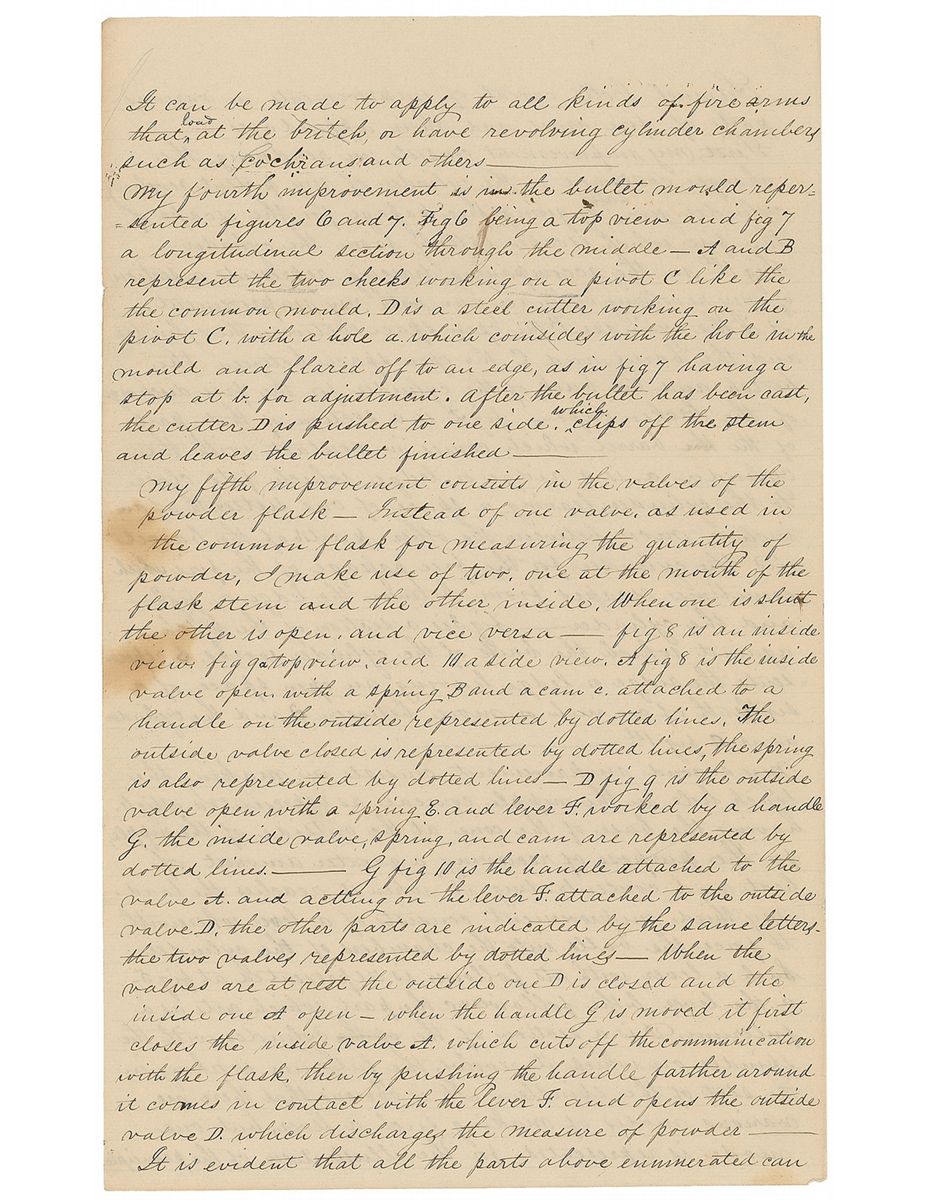 It can be made to apply to all kinds of fire arms
that load at the britch, or have revolving cylinder chambers
such as Cochrans and others ———
My fourth improvement is in the bullet mould reper=
=sented figures 6 and 7. Fig 6 being a top view and fig 7
a longitudinal section through the middle — A and B
represent the two cheeks working on a pivot C like the
the common mould. D is a steel cutter working on the
pivot C. with a hole a. which coinsides with the hole in the
mould and flared off to an edge, as in fig 7 having a
stop at b. for adjustment. After the bullet has been cast,
the cutter D is pushed to one side. which clips off the stem
and leaves the bullet finished ———
My fifth improvement consists in the valves of the
powder flask — Instead of one valve. as used in
the common flask for measuring the quantity of
powder, I make use of two. one at the mouth of the
flask stem and the other inside. When one is shutt
the other is open. and vice versa — fig 8 is an inside
view. fig 9 a top view. and 10 a side view. A fig 8 is the inside
valve open. with a spring B and a cam c. attached to a
handle on the outside represented by dotted lines. The
outside valve closed is represented by dotted lines, the spring
is also represented by dotted lines — D fig 9 is the outside
valve open with a spring E. and lever F. worked by a handle
G. the inside valve, spring, and cam are represented by
dotted lines. ——— G fig 10 is the handle attached to the
valve A. and actting on the lever F. attached to the outside
valve D. the other parts are indicated by the same letters-
the two valves represented by dotted lines — When the
valves are at rest the outside one D is closed and the
inside one A open — when the handle G is moved it first
closes the inside valve A. which cuts off the communication
with the flask. then by pushing the handle farther around
it comes in contact with the lever F. and opens the outside
valve D. which discharges the measure of powder ———
It is evident that all the parts above enumerated can